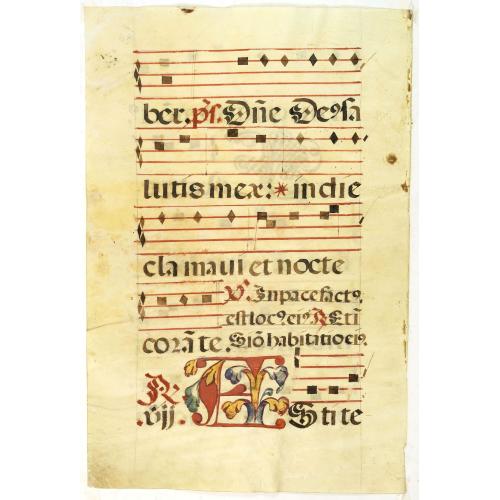 ber. ps. Dñe De⁹ sa
lutis mex: * in die
clamaui et nocte
V. In pace fact⁹
est loc⁹ ei⁹ R Et ĩ
corã te. Siõ habitatio ei⁹.
R.
vij. E Stite